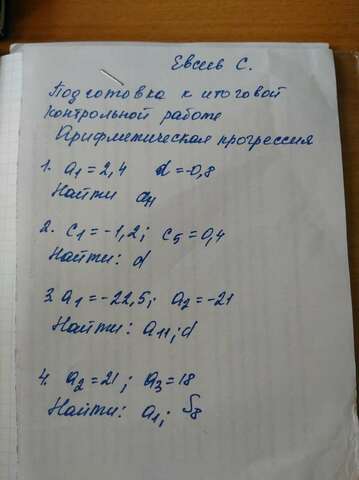 Евсеев С.
Подготовка к итоговой
контрольной работе
Арифметическая прогрессия
1. a₁ = 2,4 d = -0,8
Найти a₁₁
2. c₁ = -1,2; c₅ = 0,4
Найти: d
3. a₁ = -22,5; a₂ = -21
Найти: a₁₁; d
4. a₂ = 21; a₃ = 18
Найти: a₁; S₈